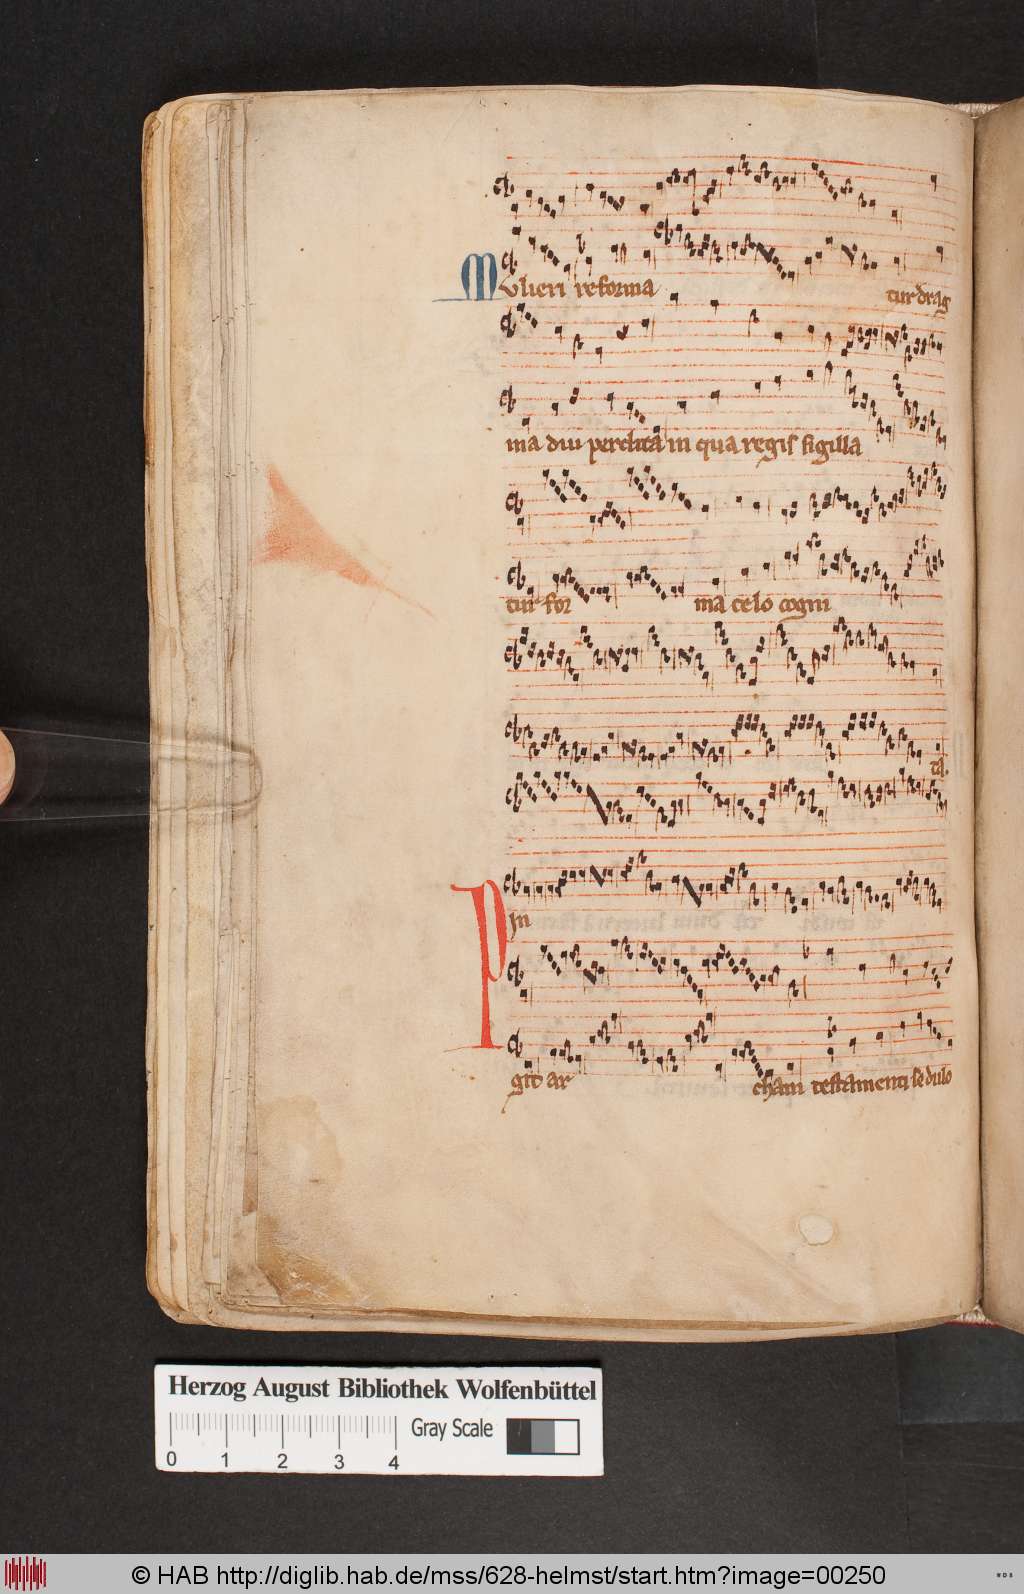 Mulieri reforma tur drag
ma diu perdita in qua regis sigilla
tur for ma celo cogni
ta.
Pin
git ar cham testamenti sedulo
Herzog August Bibliothek Wolfenbüttel
Gray Scale
0 1 2 3 4
© HAB http://diglib.hab.de/mss/628-helmst/start.htm?image=00250